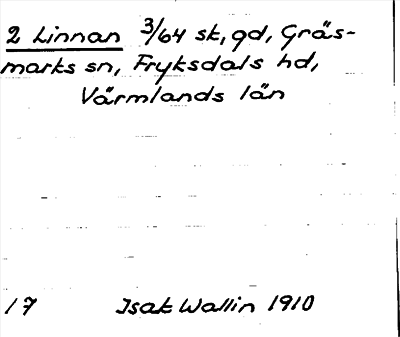 2 Linnan 3/64 sk, gd, Gräs-
marks sn, Fryksdals hd,
Värmlands län
17 Isak Wallin 1910